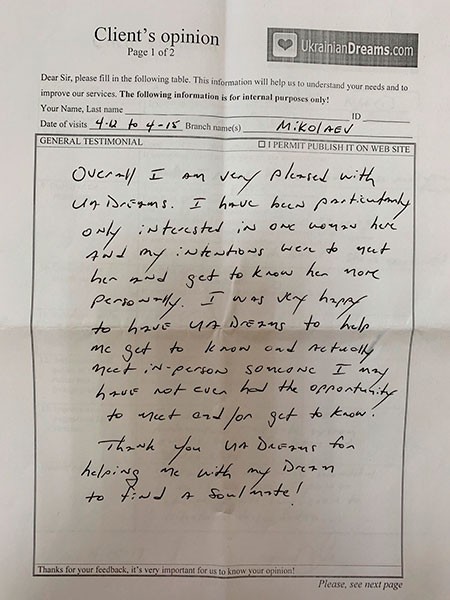 Client's opinion
Page 1 of 2
UkrainianDreams.com
Dear Sir, please fill in the following table. This information will help us to understand your needs and to
improve our services. The following information is for internal purposes only!
Your Name, Last name ID
Date of visits 4-12 to 4-15 Branch name(s) Mikolaev
GENERAL TESTIMONIAL I PERMIT PUBLISH IT ON WEB SITE
Overall I am very pleased with
UADreams. I have been particularly
only interested in one woman here
and my intentions were to meet
her and get to know her more
personally. I was very happy
to have UADreams to help
me get to know and actually
meet in-person someone I may
have not even had the opportunity
to meet and/or get to know.
Thank you UADreams for
helping me with my Dream
to find a soulmate!
Thanks for your feedback, it's very important for us to know your opinion!
Please, see next page